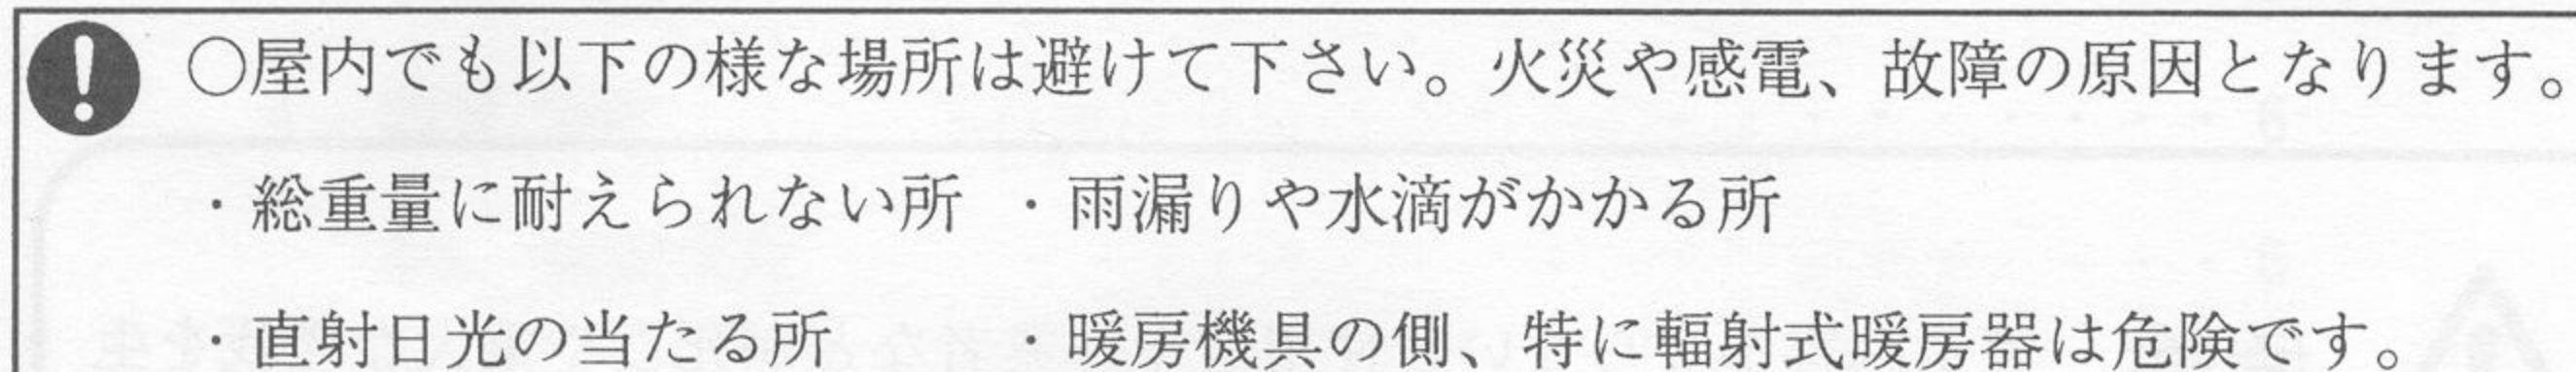 ○屋内でも以下の様な場所は避けて下さい。火災や感電、故障の原因となります。
・総重量に耐えられない所 ・雨漏りや水滴がかかる所
・直射日光の当たる所 ・暖房機具の側、特に輻射式暖房器は危険です。